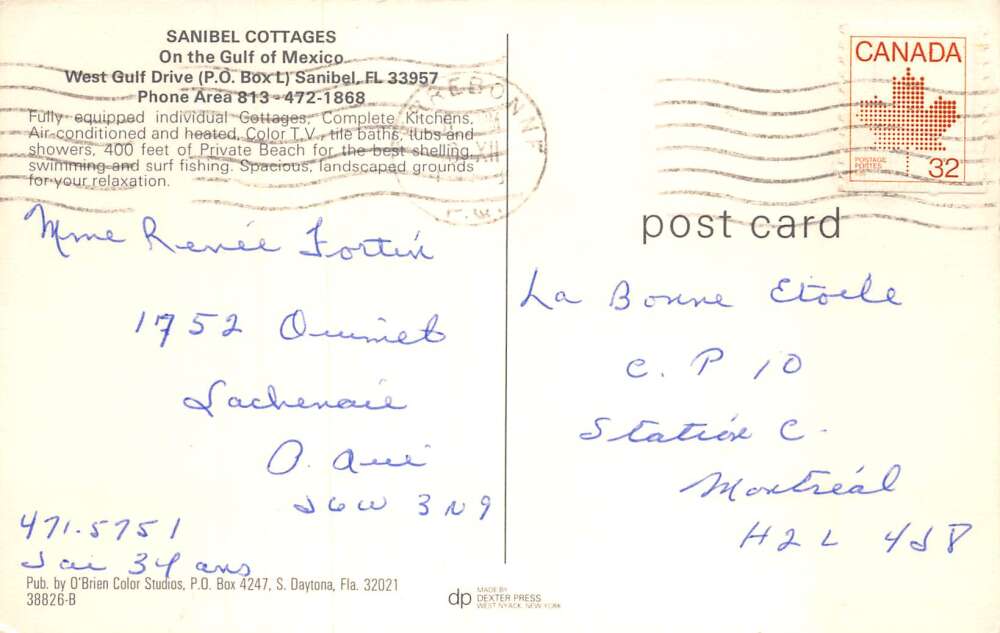 SANIBEL COTTAGES
On the Gulf of Mexico
West Gulf Drive (P.O. Box L) Sanibel, FL 33957
Phone Area 813-472-1868
Fully equipped individual Cottages. Complete Kitchens.
Air-conditioned and heated, Color T.V., tile baths, tubs and
showers, 400 feet of Private Beach for the best shelling,
swimming and surf fishing. Spacious, landscaped grounds
for your relaxation.
Mme Renée Fortin
1752 Ouimet
Lachenaie
J6W 3N9
471-5751
J'ai 34 ans
Pub. by O'Brien Color Studios, P.O. Box 4247, S. Daytona, Fla. 32021
38826-B
dp
MADE BY
DEXTER PRESS
WEST NYACK, NEW YORK
CANADA
POSTAGE
POSTES
32
post card
La Bonne Etoile
C.P 10
Station C.
Montréal
H2L 4J8